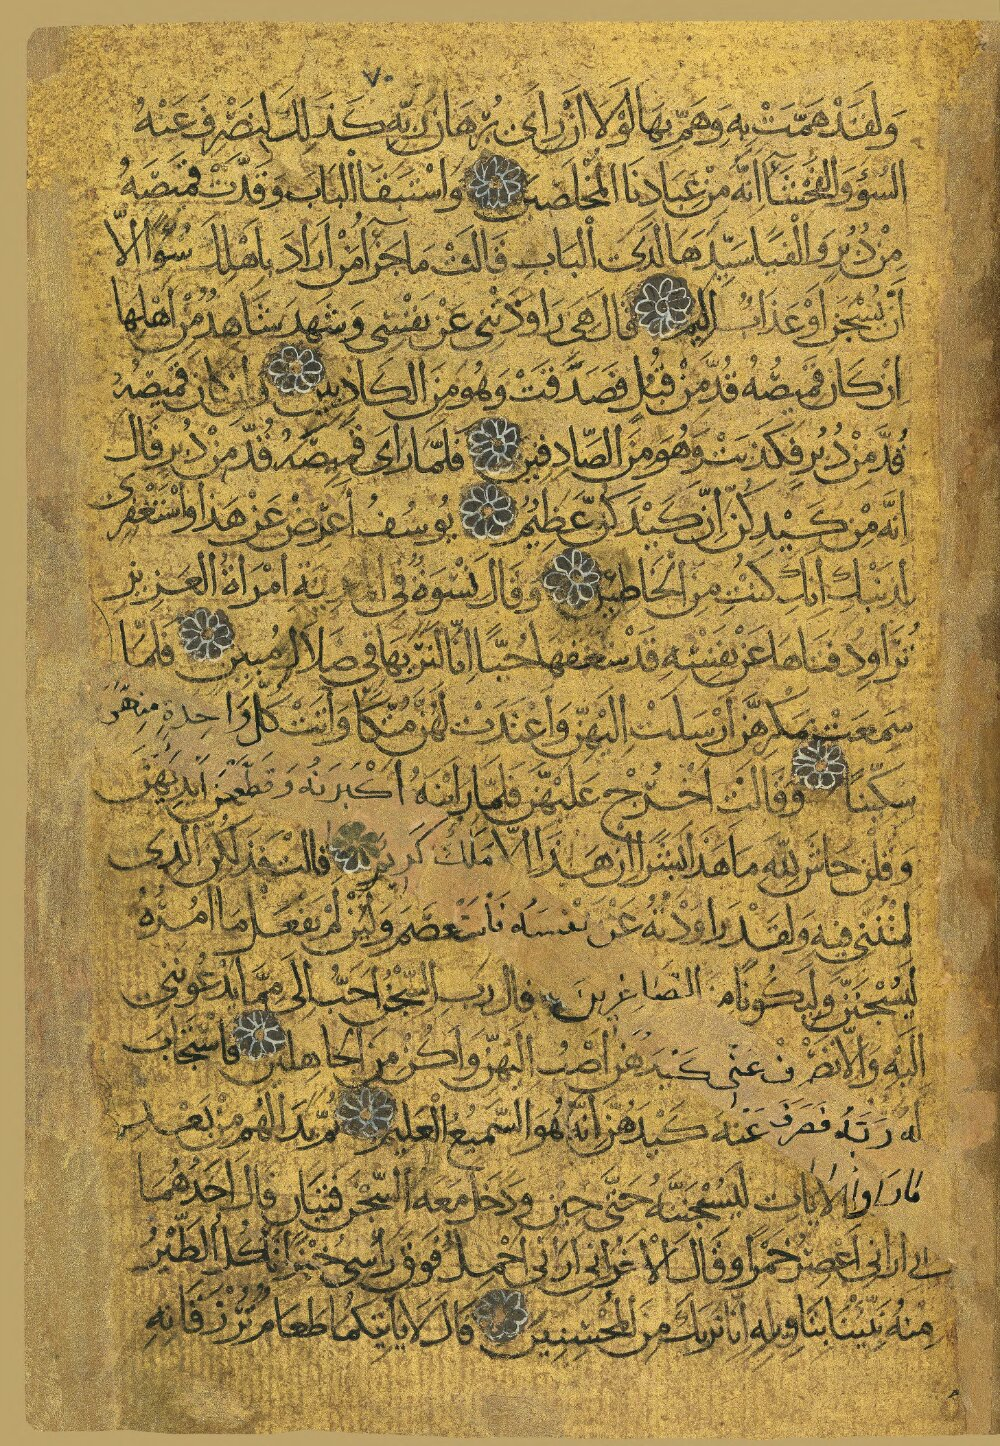 ٧٠
وَلَقَدْ هَمَّتْ بِهِ وَهَمَّ بِهَا لَوْلَا أَنْ رَأَى بُرْهَانَ رَبِّهِ كَذَلِكَ لِنَصْرِفَ عَنْهُ
السُّوءَ وَالْفَحْشَاءَ إِنَّهُ مِنْ عِبَادِنَا الْمُخْلَصِينَ وَاسْتَبَقَا الْبَابَ وَقَدَّتْ قَمِيصَهُ
مِنْ دُبُرٍ وَأَلْفَيَا سَيِّدَهَا لَدَى الْبَابِ قَالَتْ مَا جَزَاءُ مَنْ أَرَادَ بِأَهْلِكَ سُوءًا إِلَّا
أَنْ يُسْجَنَ أَوْ عَذَابٌ أَلِيمٌ قَالَ هِيَ رَاوَدَتْنِي عَنْ نَفْسِي وَشَهِدَ شَاهِدٌ مِنْ أَهْلِهَا
إِنْ كَانَ قَمِيصُهُ قُدَّ مِنْ قُبُلٍ فَصَدَقَتْ وَهُوَ مِنَ الْكَاذِبِينَ وَإِنْ كَانَ قَمِيصُهُ
قُدَّ مِنْ دُبُرٍ فَكَذَبَتْ وَهُوَ مِنَ الصَّادِقِينَ فَلَمَّا رَأَى قَمِيصَهُ قُدَّ مِنْ دُبُرٍ قَالَ
إِنَّهُ مِنْ كَيْدِكُنَّ إِنَّ كَيْدَكُنَّ عَظِيمٌ يُوسُفُ أَعْرِضْ عَنْ هَذَا وَاسْتَغْفِرِي
لِذَنْبِكِ إِنَّكِ كُنْتِ مِنَ الْخَاطِئِينَ وَقَالَ نِسْوَةٌ فِي الْمَدِينَةِ امْرَأَةُ الْعَزِيزِ
تُرَاوِدُ فَتَاهَا عَنْ نَفْسِهِ قَدْ شَغَفَهَا حُبًّا إِنَّا لَنَرَيهَا فِي ضَلَالٍ مُبِينٍ فَلَمَّا
سَمِعَتْ بِمَكْرِهِنَّ أَرْسَلَتْ إِلَيْهِنَّ وَأَعْتَدَتْ لَهُنَّ مُتَّكَأً وَآتَتْ كُلَّ وَاحِدَةٍ مِنْهُنَّ
سِكِّينًا وَقَالَتِ اخْرُجْ عَلَيْهِنَّ فَلَمَّا رَأَيْنَهُ أَكْبَرْنَهُ وَقَطَّعْنَ أَيْدِيَهُنَّ
وَقُلْنَ حَاشَ لِلَّهِ مَا هَذَا بَشَرًا إِنْ هَذَا إِلَّا مَلَكٌ كَرِيمٌ قَالَتْ فَذَلِكُنَّ الَّذِي
لُمْتُنَّنِي فِيهِ وَلَقَدْ رَاوَدْتُهُ عَنْ نَفْسِهِ فَاسْتَعْصَمَ وَلَئِنْ لَمْ يَفْعَلْ مَا آمُرُهُ
لَيُسْجَنَنَّ وَلَيَكُونًا مِنَ الصَّاغِرِينَ قَالَ رَبِّ السِّجْنُ أَحَبُّ إِلَيَّ مِمَّا يَدْعُونَنِي
إِلَيْهِ وَإِلَّا تَصْرِفْ عَنِّي كَيْدَهُنَّ أَصْبُ إِلَيْهِنَّ وَأَكُنْ مِنَ الْجَاهِلِينَ فَاسْتَجَابَ
لَهُ رَبُّهُ فَصَرَفَ عَنْهُ كَيْدَهُنَّ إِنَّهُ هُوَ السَّمِيعُ الْعَلِيمُ ثُمَّ بَدَا لَهُمْ مِنْ بَعْدِ
مَا رَأَوُا الْآيَاتِ لَيَسْجُنُنَّهُ حَتَّى حِينٍ وَدَخَلَ مَعَهُ السِّجْنَ فَتَيَانِ قَالَ أَحَدُهُمَا
إِنِّي أَرَانِي أَعْصِرُ خَمْرًا وَقَالَ الْآخَرُ إِنِّي أَرَانِي أَحْمِلُ فَوْقَ رَأْسِي خُبْزًا تَأْكُلُ الطَّيْرُ
مِنْهُ نَبِّئْنَا بِتَأْوِيلِهِ إِنَّا نَرَيكَ مِنَ الْمُحْسِنِينَ قَالَ لَا يَأْتِيكُمَا طَعَامٌ تُرْزَقَانِهِ